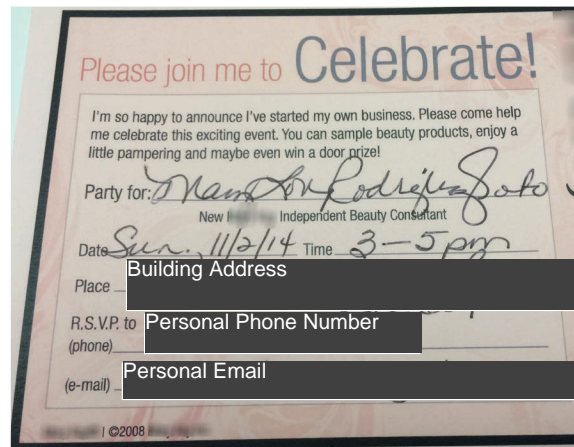 Please join me to Celebrate!
I'm so happy to announce I've started my own business. Please come help
me celebrate this exciting event. You can sample beauty products, enjoy a
little pampering and maybe even win a door prize!
Party for: Rodriguez Soto
New Independent Beauty Consultant
Date Sun. 11/2/14 Time 3-5pm
Building Address
Place
R.S.V.P. to Personal Phone Number
(phone)
Personal Email
(e-mail)
| ©2008